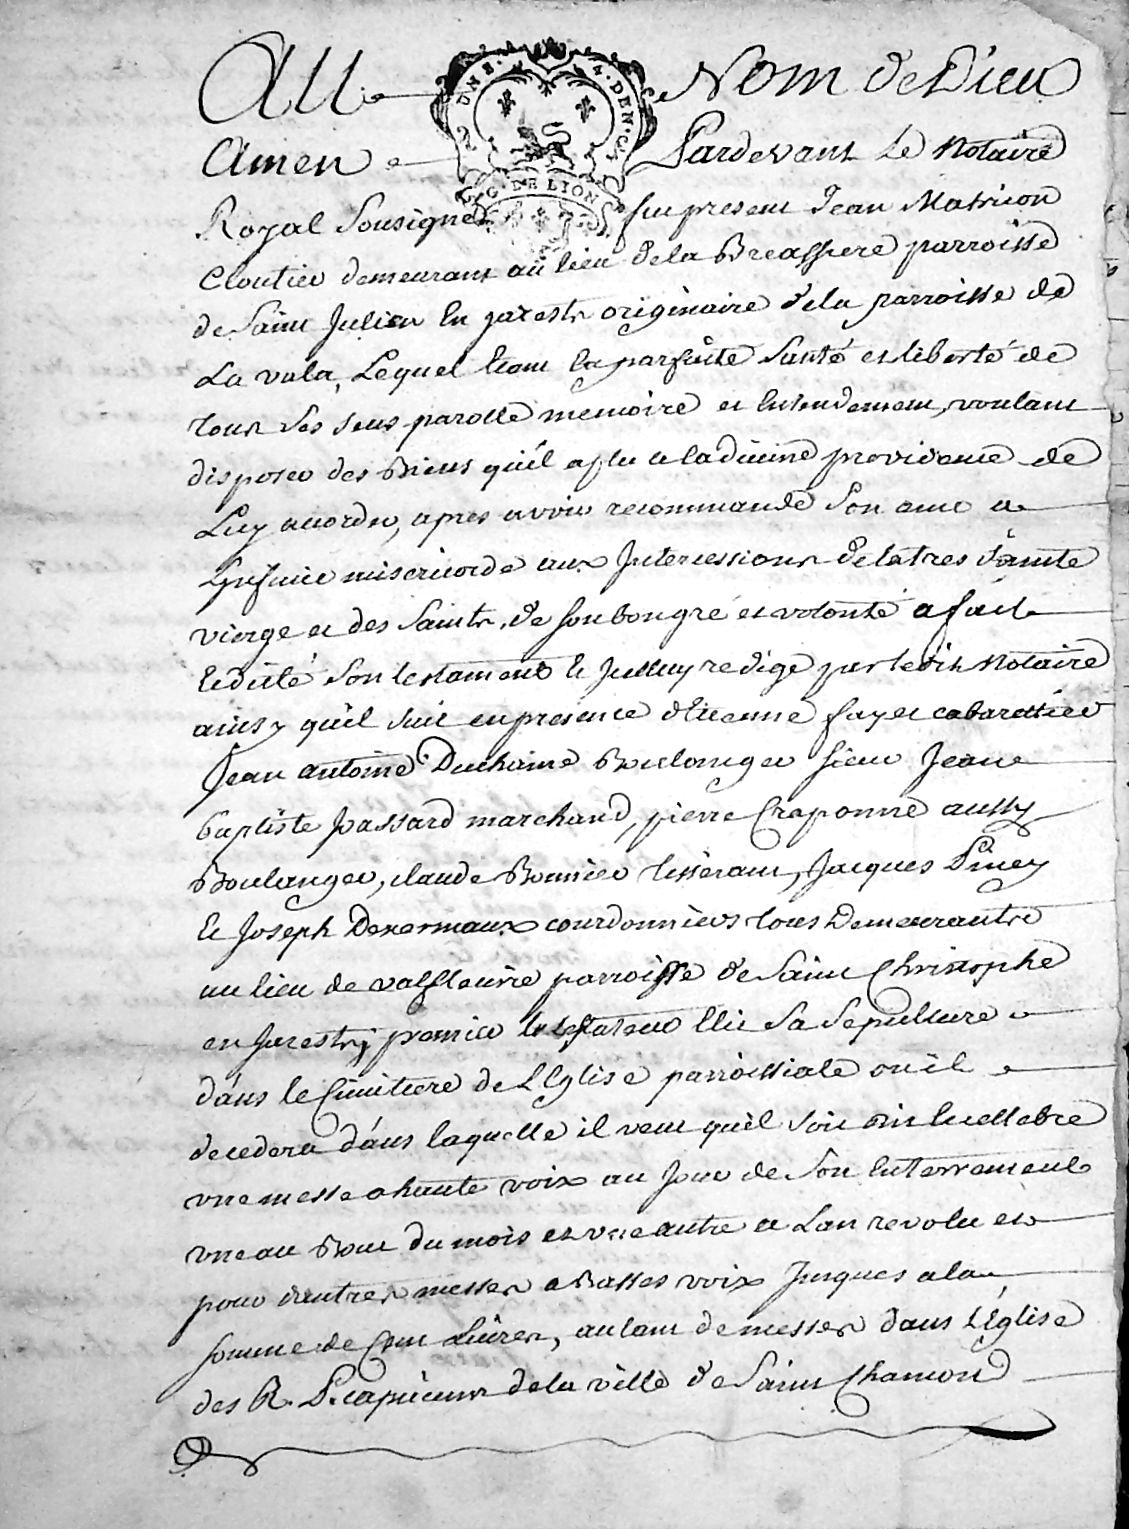 Au Nom de Dieu
UNS. 4. DEN. G. DE LION
Amen Pardevant Le Notaire
Royal Sousigné fut present Jean Matricon
Cloutier demeurant au lieu de la Breassiere parroisse
de Saint Julien En jarestz originaire de la parroisse de
La vala, Lequel Etant En parfaite Santé et liberté de
tous Ses Sens parolle memoire et Entendement, voulant
disposer des Biens qu'il a plu a la divine providence de
Luy accorder, apres avoir recommandé Son ame a
Linfinie misericorde aux Intercessions de la tres Sainte
vierge et des Saints, de Son bon gré et volonté a fait
Et dicté Son testament Et Icelluy redigé par ledit Notaire
ainsy qu'il Suit en presence d'Etienne fayet cabarettier
Jean antoine Duchaine Boulonger Sieur Jean
baptiste passard marchand, pierre Craponne aussy
Boulanger, claude Bonnier tisserant, Jacques Piney
Et Joseph Dexermaux courdonniers tous Demeurantz
au lieu de valfleurie parroisse de Saint Christophe
en Jarestz, premier le testateur Elit Sa Sepulture
dans le Cimitiere de L'Eglise parroissiale ou il
decedera dans laquelle il veut qu'il Soit dit Et cellebré
vne messe a haute voix au Jour de Son Enterrement
vne au Bout du mois et vne autre a Lan revolu et
pour d'autres messes a Basses voix Jusques a la
somme de Cent Livres, autant de messes dans L'Eglise
des R. P. capucins de la ville de Saint Chamond